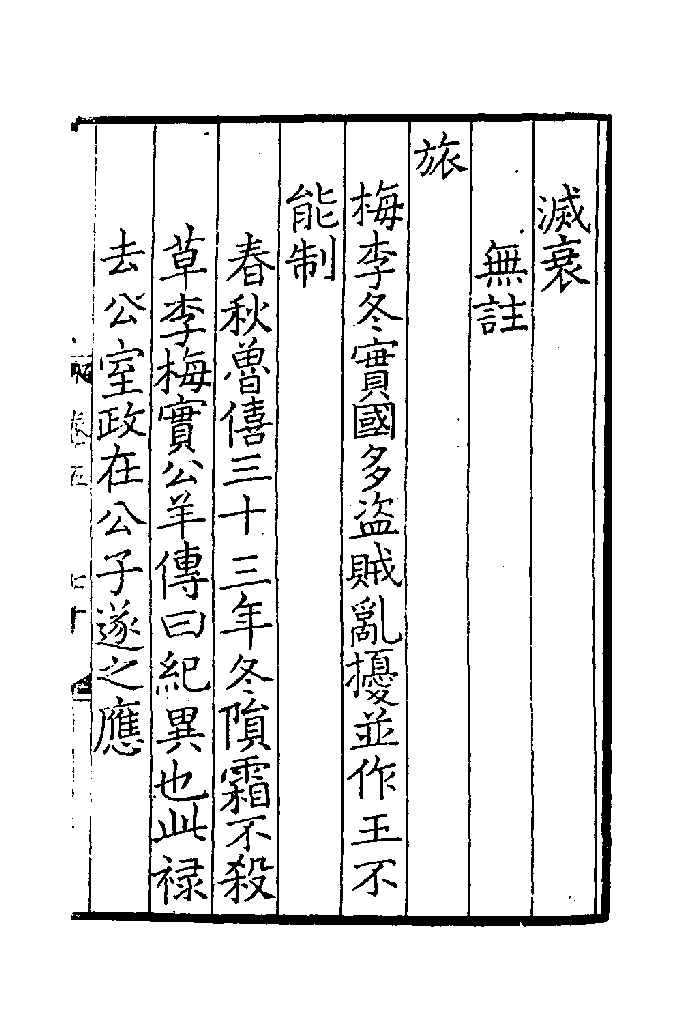 滅衰
無註
旅
梅李冬實國多盜賊亂擾並作王不
能制
春秋魯僖三十三年冬隕霜不殺
草李梅實公羊傳曰紀異也此祿
去公室政在公子遂之應